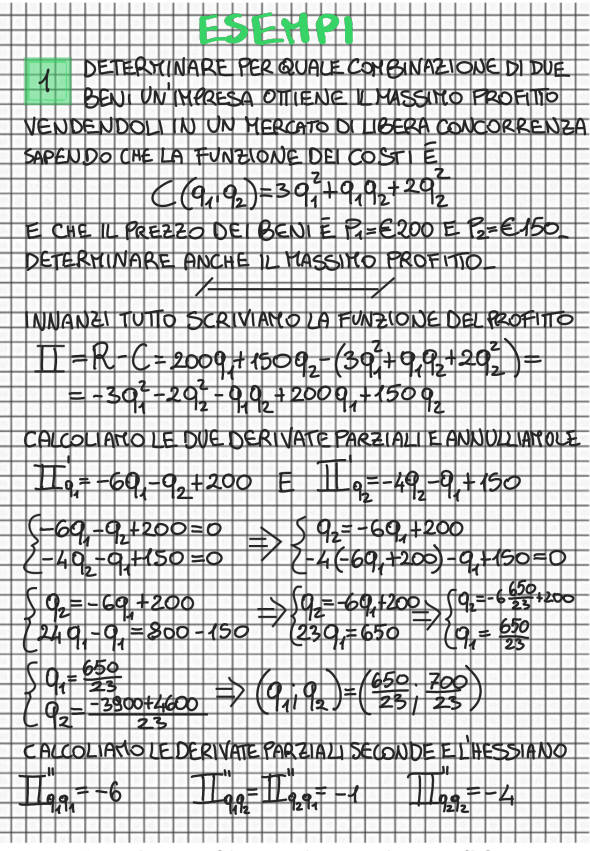 ESEMPI
1 DETERMINARE PER QUALE COMBINAZIONE DI DUE
BENI UN'IMPRESA OTTIENE IL MASSIMO PROFITTO
VENDENDOLI IN UN MERCATO DI LIBERA CONCORRENZA
SAPENDO CHE LA FUNZIONE DEI COSTI È
C(q₁,q₂)=3q₁²+q₁q₂+2q₂²
E CHE IL PREZZO DEI BENI È P₁=€200 E P₂=€150_
DETERMINARE ANCHE IL MASSIMO PROFITTO_
INNANZI TUTTO SCRIVIAMO LA FUNZIONE DEL PROFITTO
Π=R-C=200q₁+150q₂-(3q₁²+q₁q₂+2q₂²)=
=-3q₁²-2q₂²-q₁q₂+200q₁+150q₂
CALCOLIAMO LE DUE DERIVATE PARZIALI E ANNULLIAMOLE
Π'q₁=-6q₁-q₂+200 E Π'q₂=-4q₂-q₁+150
{-6q₁-q₂+200=0 => {q₂=-6q₁+200
{-4q₂-q₁+150=0 {-4(-6q₁+200)-q₁+150=0
{q₂=-6q₁+200 => {q₂=-6q₁+200 => {q₂=-6 650/23+200
{24q₁-q₁=800-150 {23q₁=650 {q₁=650/23
{q₁=650/23 => (q₁;q₂)=(650/23;700/23)
{q₂=-3900+4600/23
CALCOLIAMO LE DERIVATE PARZIALI SECONDE E L'HESSIANO
Π''q₁q₁=-6 Π''q₁q₂=Π''q₂q₁=-1 Π''q₂q₂=-4